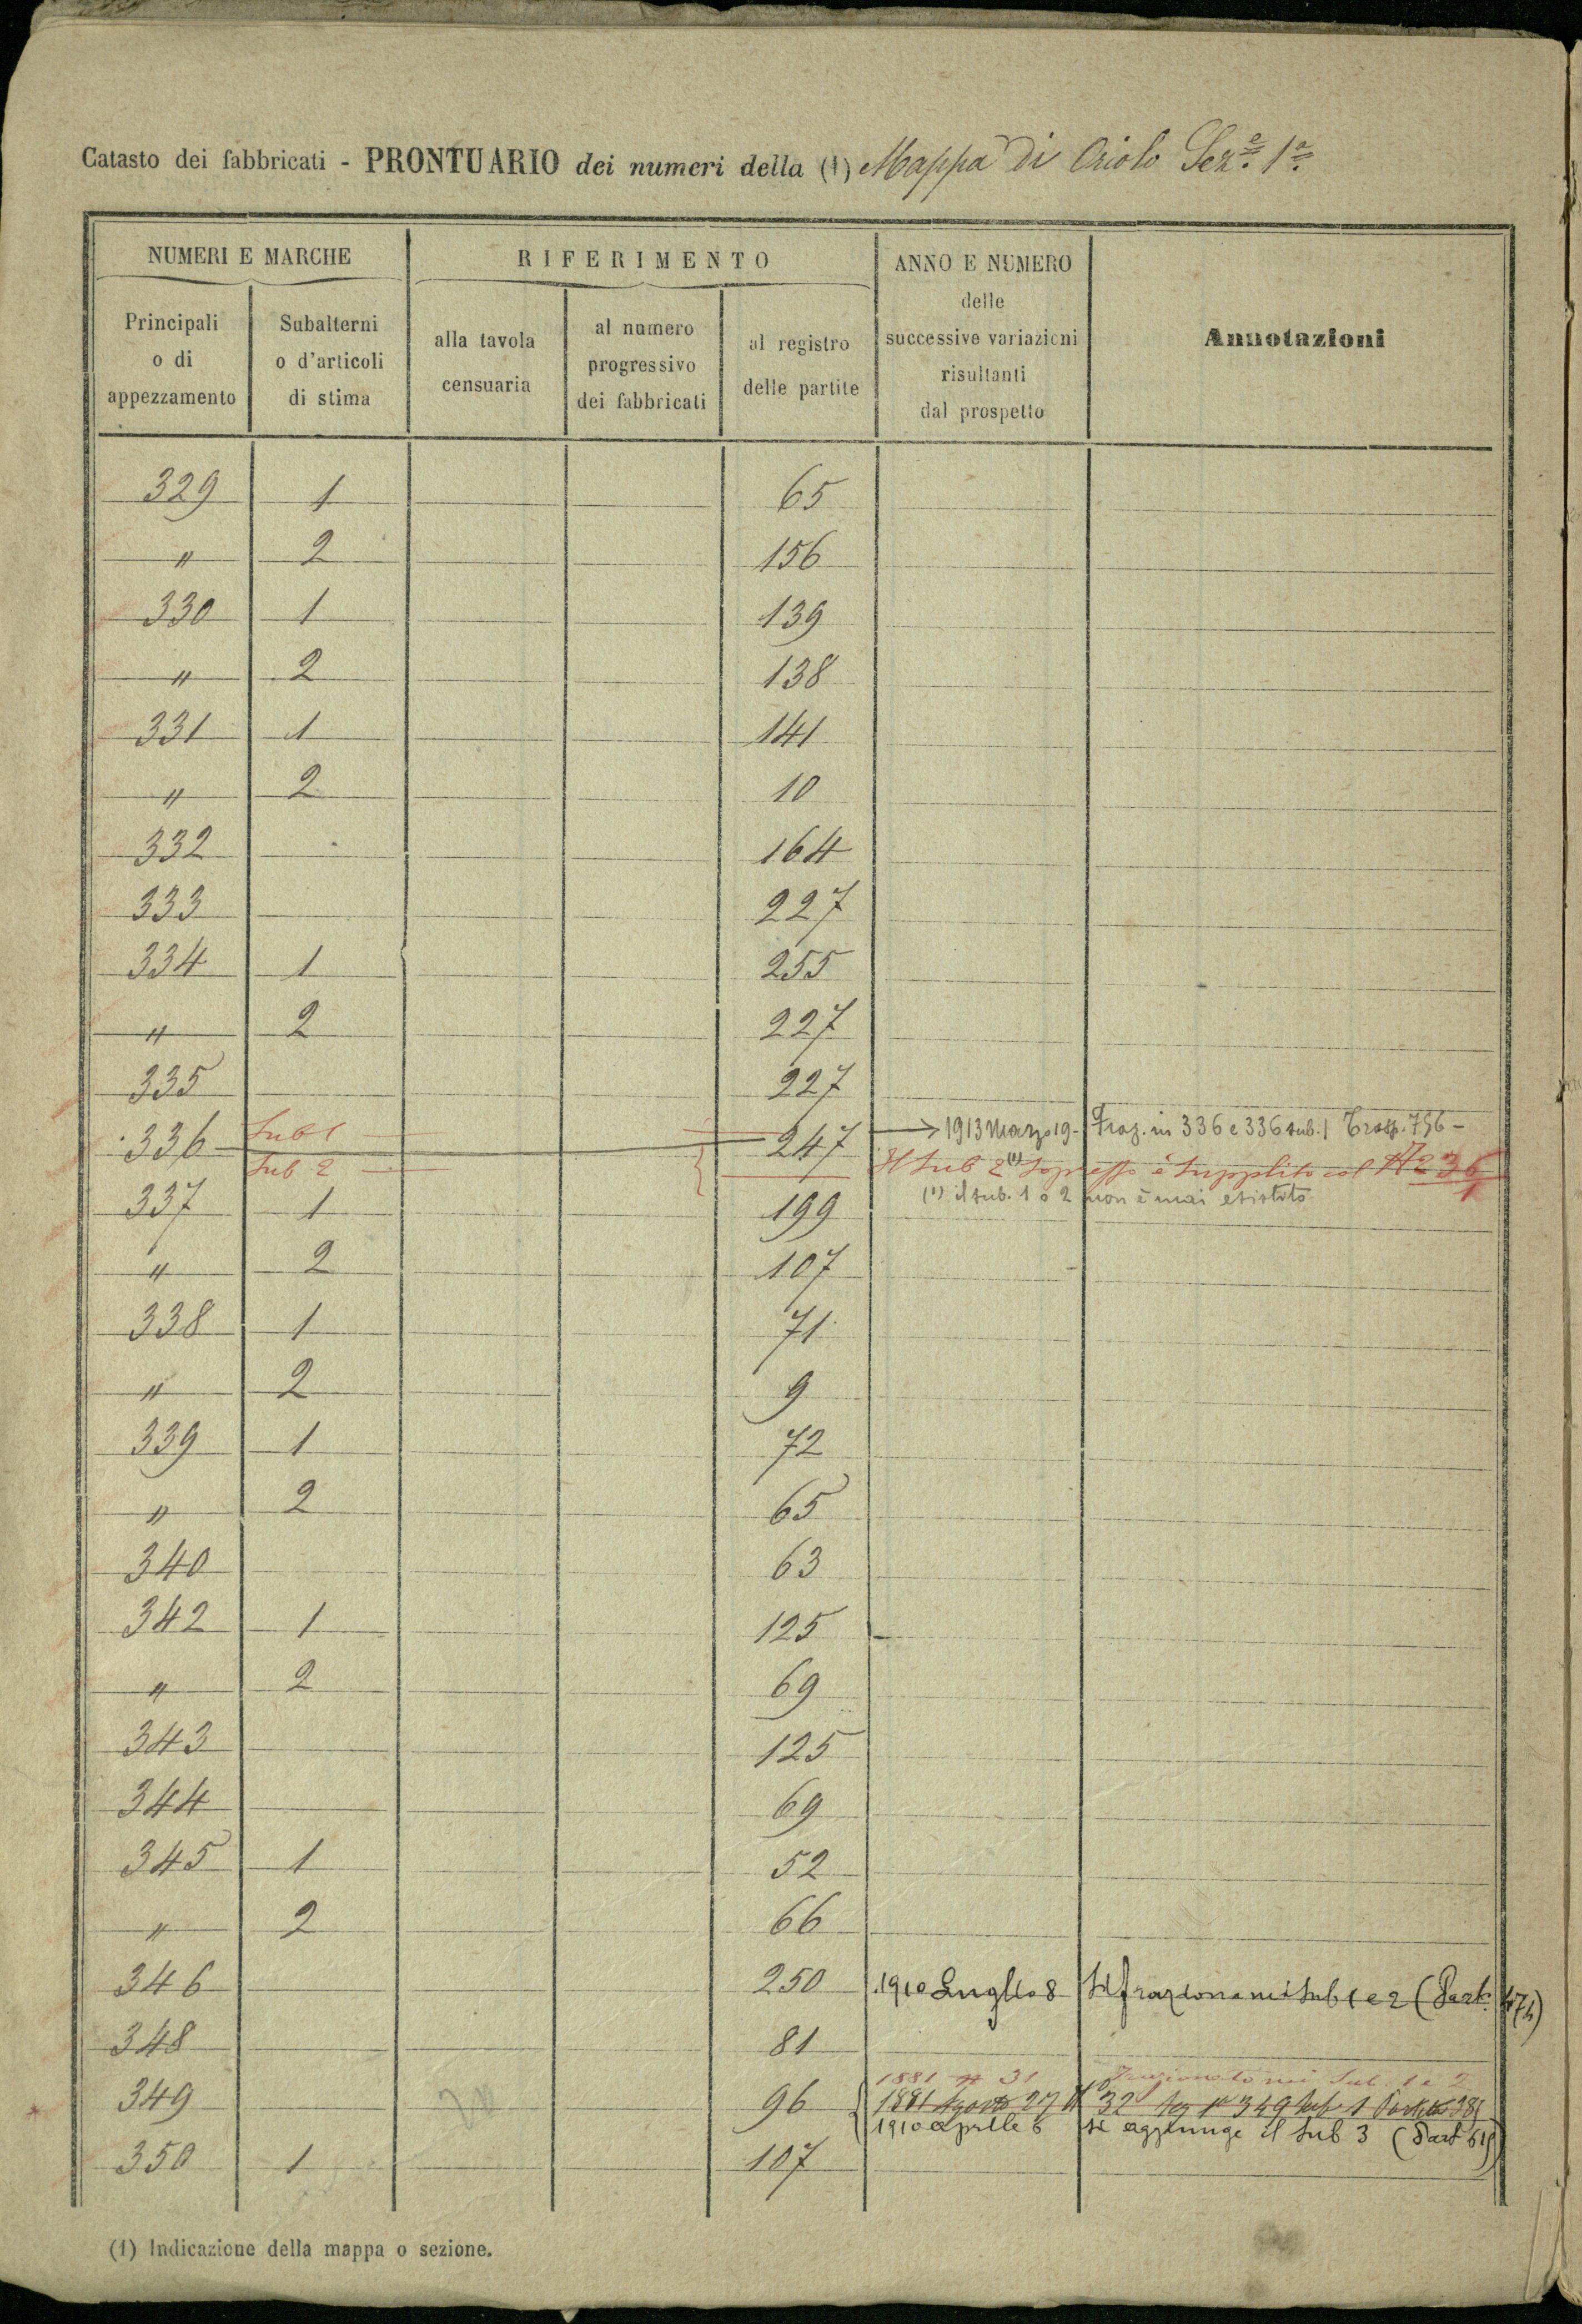 Catasto dei fabbricati - PRONTUARIO dei numeri della (1) Mappa di Oriolo Sez.e 1a
NUMERI E MARCHE
RIFERIMENTO
ANNO E NUMERO
delle
successive variazioni
risultanti
dal prospetto
Annotazioni
Principali
o di
appezzamento
Subalterni
o d'articoli
di stima
alla tavola
censuaria
al numero
progressivo
dei fabbricati
al registro
delle partite
329 1 65
" 2 156
330 1 139
" 2 138
331 1 141
" 2 10
332 164
333 227
334 1 255
" 2 227
335 227
Sub 1
336 247 1913 Marzo 19 - Fraz. in 336 e 336 sub. 1 Trasp. 756 -
Sub 2 Il Sub 2 (1) soppresso è supplito col
337 1 199 (1) il sub. 1 o 2 non è mai esistito
" 2 107
338 1 71
" 2 9
339 1 72
" 2 65
340 63
342 1 125
" 2 69
343 125
344 69
345 1 52
" 2 66
346 250 1910 Luglio 8 Si fraziona nei sub 1 e 2 (Part.
348 81
1881 N 31 Frazionato nei Sub. 1 e 2
349 96 1881 Agosto 27 N° 32 349 sub 1
1910 aprile 6 si aggiunge il sub 3 (Part 619)
350 1 107
(1) Indicazione della mappa o sezione.